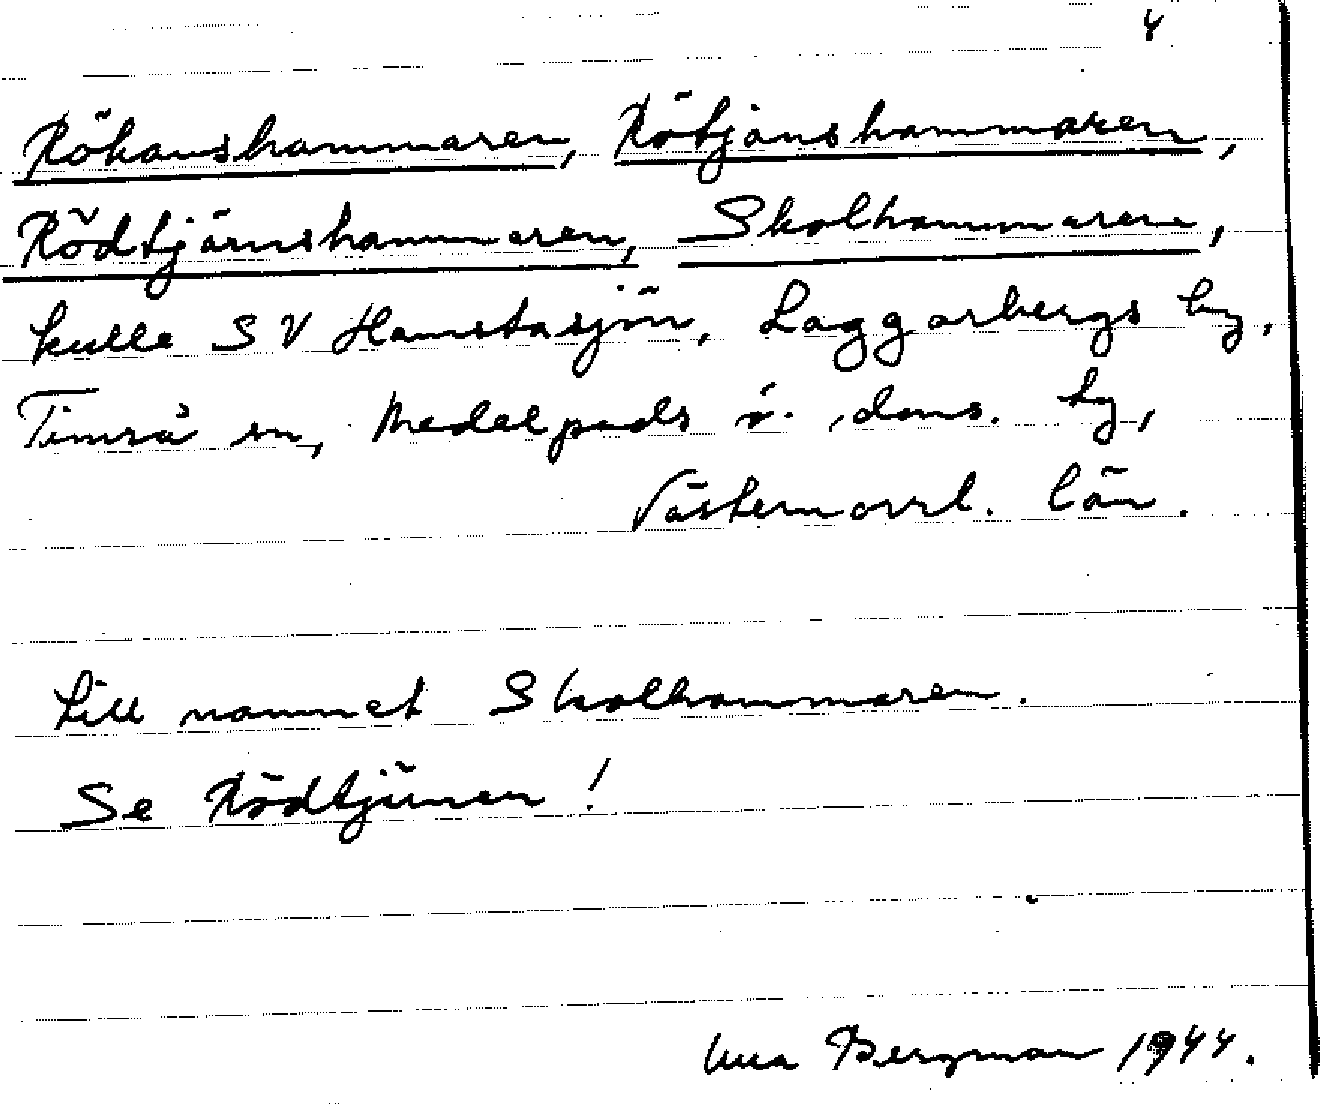 4
Rökanshammaren, Rötjänshammaren,
Rödtjärnshammaren, Skolhammaren,
kulle SV Hamstasjön, Laggarbergs by,
Timrå sn, Medelpads ö. doms. by,
Västernorrl. län.
till namnet Skolhammaren.
Se Rödtjärnen!
Bergman 1944.